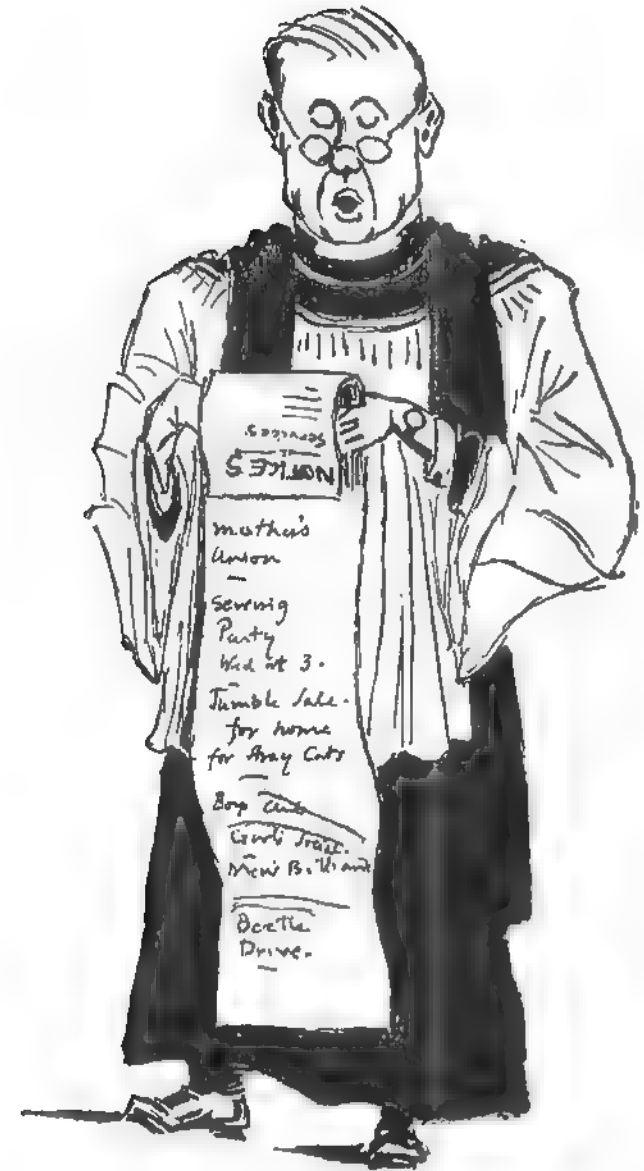 Services
&
NOTICES
Mother's
Union
Sewing
Party
Wed at 3.
Jumble Sale.
for home
for Stray Cats
Boys Club
Girls
Men's Billiard
Beetle
Drive.